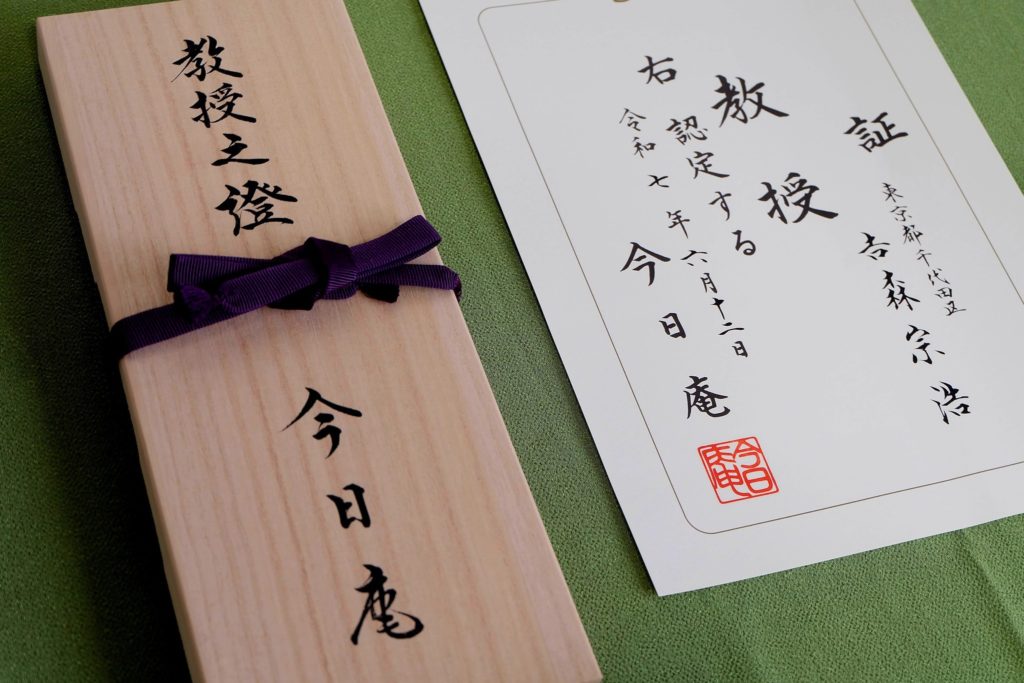 教授之證
今日庵
証
東京都千代田区
吉森宗浩
教授
右認定する
令和七年六月十二日
今日庵
今日庵